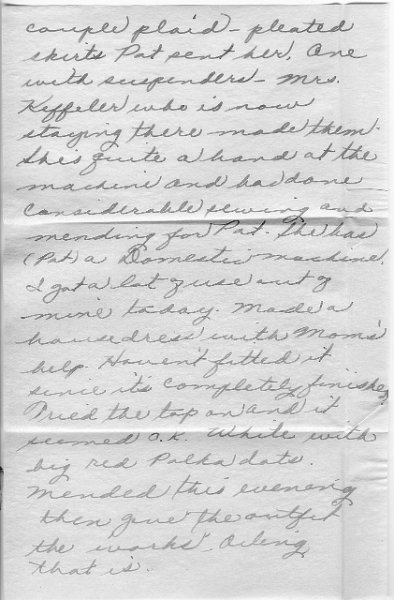 couple plaid - pleated
skirts Pat sent her. One
with suspenders - Mrs.
Keffeler who is now
staying there made them.
She's quite a hand at the
machine and has done
considerable sewing and
mending for Pat. She has
(Pat) a Domestic machine.
I got a lot of use out of
mine today. Made a
housedress with Mom's
help. Haven't fitted it
since it's completely finished
Tried the top on and it
seemed O.K. White with
big red Polka dots.
Mended this evening
then gave the outfit
the works - Oiling
that is.